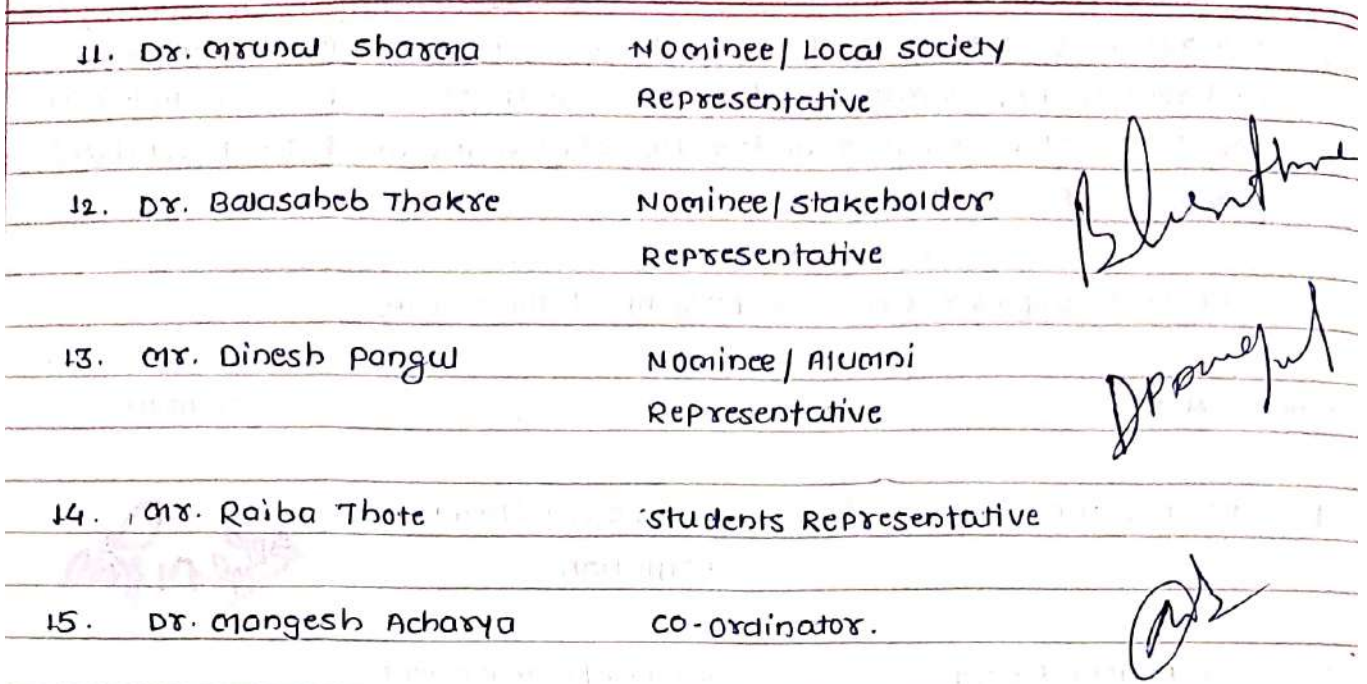 11. Dr. Mrunal Sharma Nominee/ Local society
Representative
12. Dr. Balasaheb Thakre Nominee/ stakeholder
Representative
13. Mr. Dinesh Pangul Nominee/ Alumni
Representative
14. Mr. Raiba Thote Students Representative
15. Dr. Mangesh Acharya Co-ordinator.